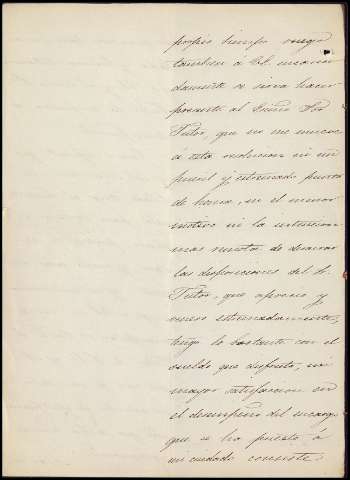 propio tiempo ruego
tambien á V.E. encareci
damente se sirva hacer
presente al Excmo Sor
Tutor, que no me mueve
á esta resolucion ni un
pueril y estremado punto
de honra, ni el menor
motivo ni la intencion
mas remota de desairar
las disposiciones del Sr.
Tutor, que aprecio y
venero estremadamente,
tengo lo bastante con el
sueldo que disfruto, mi
mayor satisfaccion en
el desempeño del encargo
que se ha puesto á
mi cuidado consiste